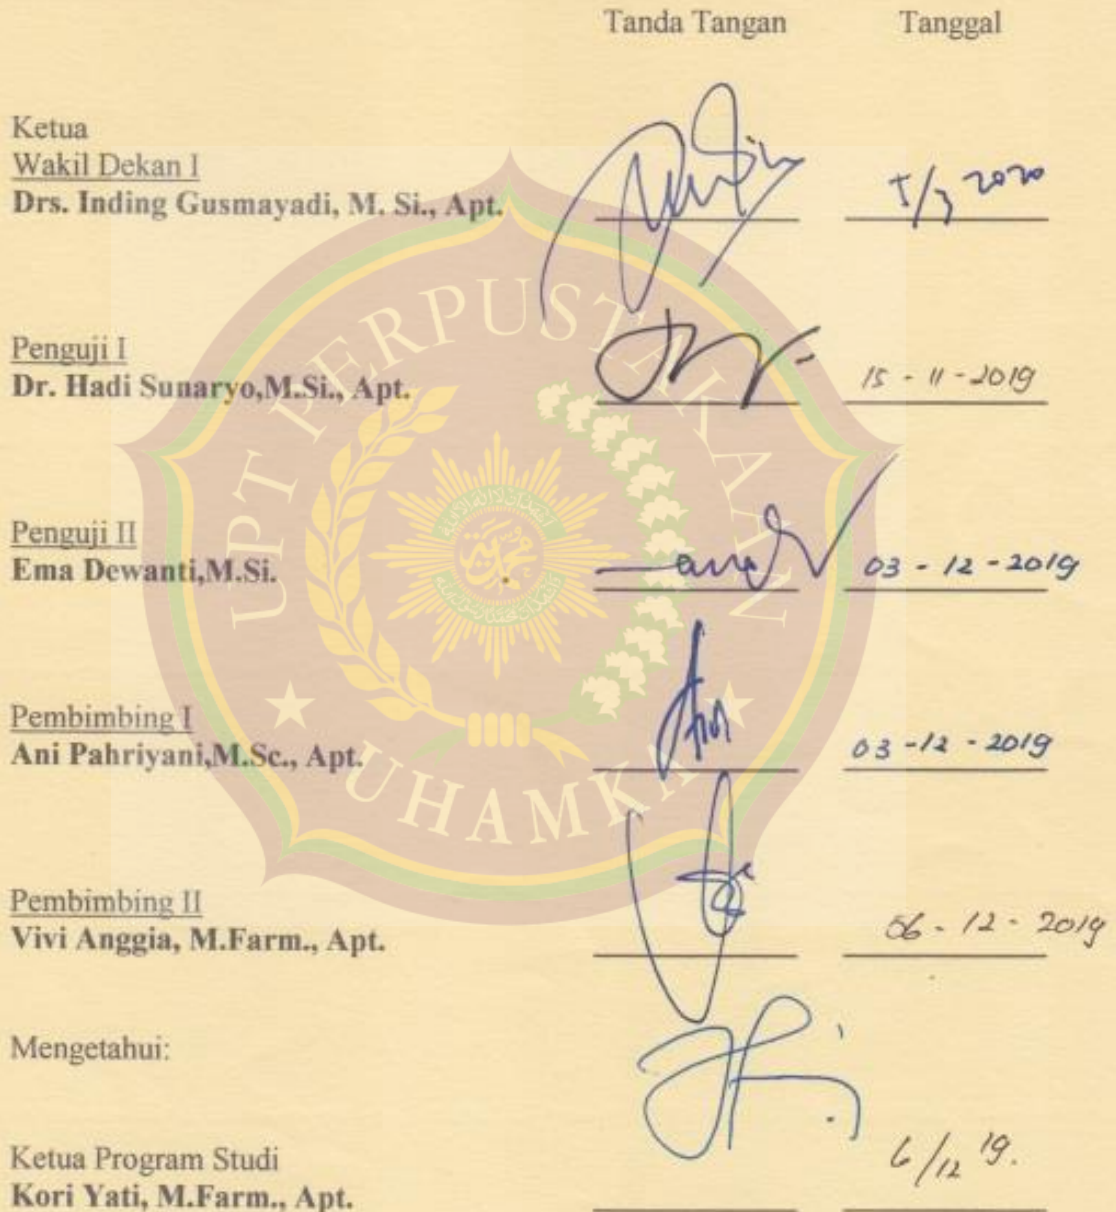 Tanda Tangan Tanggal
Ketua
Wakil Dekan I
Drs. Inding Gusmayadi, M. Si., Apt.
5/3 2020
Penguji I
Dr. Hadi Sunaryo,M.Si., Apt.
15 - 11 - 2019
Penguji II
Ema Dewanti,M.Si.
03 - 12 - 2019
Pembimbing I
Ani Pahriyani,M.Sc., Apt.
03 - 12 - 2019
Pembimbing II
Vivi Anggia, M.Farm., Apt.
06 - 12 - 2019
Mengetahui:
Ketua Program Studi
Kori Yati, M.Farm., Apt.
6/12 19.
UPT PERPUSTAKAAN
UHAMKA